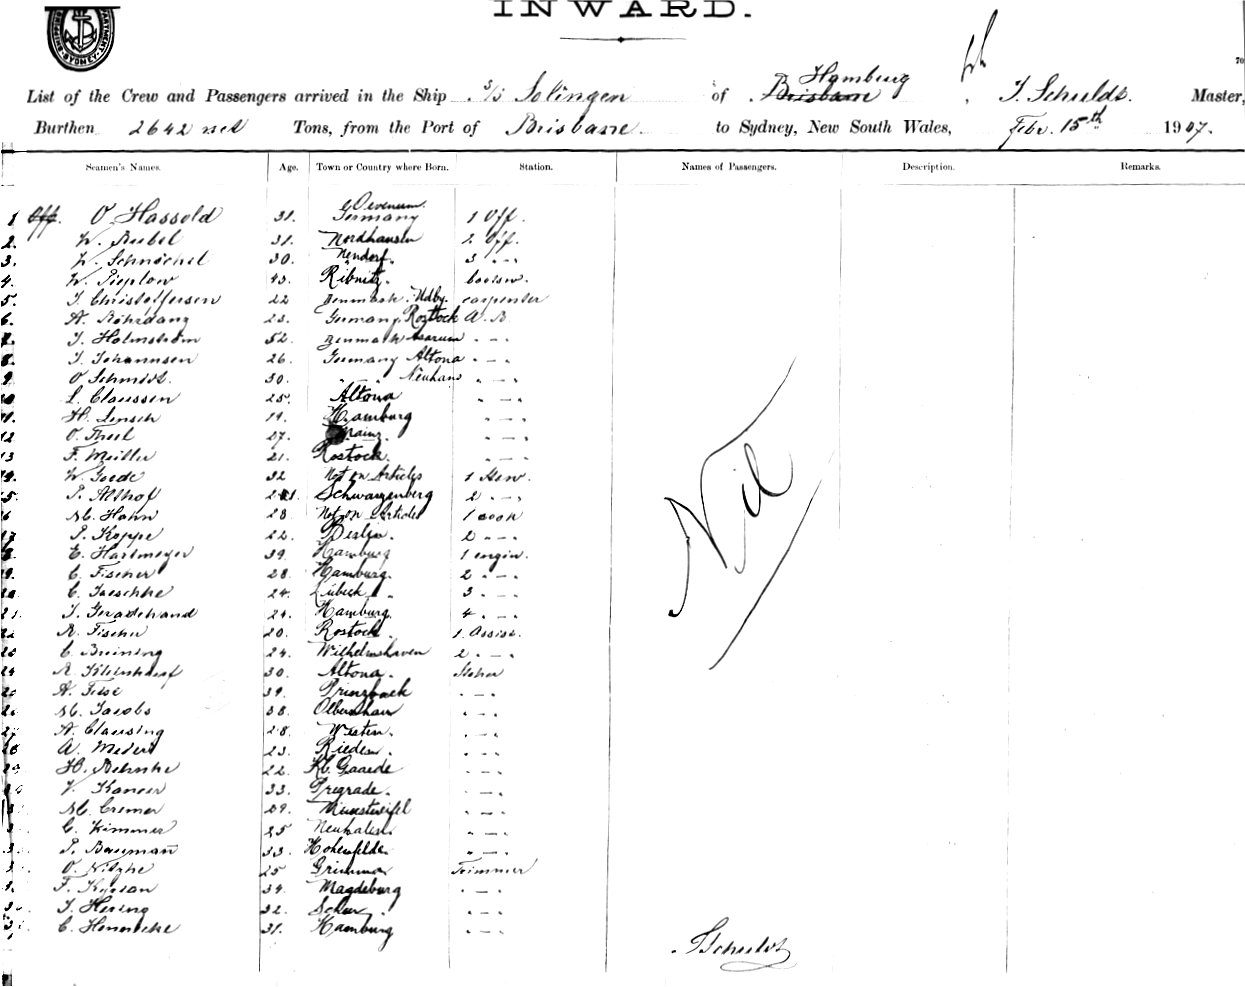 INWARD.
DEPARTMENT SYDNEY SHIPPING
List of the Crew and Passengers arrived in the Ship S/S Solingen of Brisbane Hamburg, J. Schuldt. Master,
Burthen 2642 net Tons, from the Port of Brisbane. to Sydney, New South Wales, Febr. 15th 1907.
Seamen's Names. Age. Town or Country where Born. Station. Names of Passengers. Description. Remarks.
1 Off. O. Hassold 31. Germany 1 Off.
2. W. Rubel 31. Nordhausen 2. Off.
3. W. 30. Nendorf. 3 " — "
4. W. Pieplow 43. Ribnitz. boatsw.
5. J. Christoffersen 22 Denmark. Udby. carpenter
6. A. 23. Germany. Rostock A. B.
J. Holmström 52. Denmark " — "
J. Johannsen 26. Germany Altona " — "
9 O Schmidt. 30. " — " Neuhaus " — "
10 L. Claussen 25. Altona " — "
11. H. Lensch 19. Hamburg " — "
12 O. Theel 27. Mainz. " — "
13 F. Möller 21. Rostock. " — "
14. W. Goede 32 Not on Articles 1 Stew.
15. P. Althof 21. Schwarzenberg 2 " — "
16 M. Hahn 28 Not on Articles 1 cook
17 P. Koppe 22. Berlin. 2 " — "
18. E. Hartmeyer 39. Hamburg 1 engin.
19. C. Fischer 28. Hamburg. 2 " — "
20 C. Jaeschke 24. Lübeck 3 " — "
21. J. Gradehand 24. Hamburg. 4 " — "
22 R. Fischer 20. Rostock. 1. Assist.
23 C. Bruining 24. Wilhelmshaven 2. " — "
24 R. 30. Altona. Stoker
25 A. 39. Prinzbach " — "
26 M. Jacobs 38. " — "
27 A. Clausing 28. Westen. " — "
28 A. Meder 23. Rieden. " — "
29 H. Behnke 22. Kl. Gaarde " — "
30 V. Kancer 33. Pregrade. " — "
31 M. Cremer 29. Münstereifel " — "
C. Kimmer 25 Neukalen. " — "
P. Bauman 33. Hohenfelde. " — "
O. Nitzke 25 Grimma Trimmer
F. 34. Magdeburg " — "
J. Hering 32. " — "
C. Hennicke 31. Hamburg " — "
Nil
JSchuldt